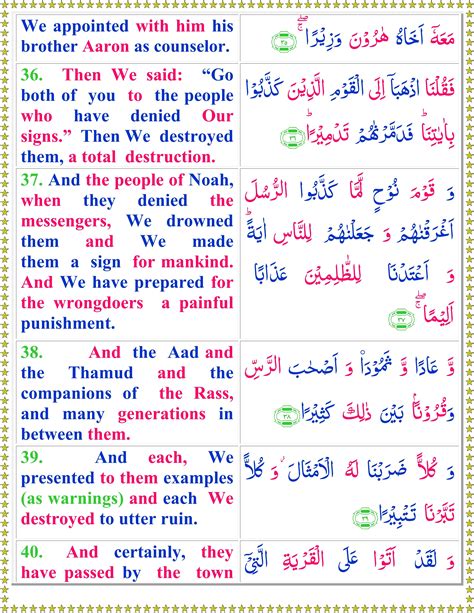 We appointed with him his
brother Aaron as counselor.
مَعَهٗۤ اَخَاهُ هٰرُوْنَ وَزِيْرًا ۚۖ ۳۵
36. Then We said: “Go
both of you to the people
who have denied Our
signs.” Then We destroyed
them, a total destruction.
فَقُلْنَا اذْهَبَاۤ اِلَى الْقَوْمِ الَّذِيْنَ كَذَّبُوْا
بِاٰيٰتِنَا ؕ فَدَمَّرْنٰهُمْ تَدْمِيْرًا ؕ ۳۶
37. And the people of Noah,
when they denied the
messengers, We drowned
them and We made
them a sign for mankind.
And We have prepared for
the wrongdoers a painful
punishment.
وَ قَوْمَ نُوْحٍ لَّمَّا كَذَّبُوا الرُّسُلَ
اَغْرَقْنٰهُمْ وَ جَعَلْنٰهُمْ لِلنَّاسِ اٰيَةً ؕ
وَ اَعْتَدْنَا لِلظّٰلِمِيْنَ عَذَابًا
اَلِيْمًا ۚۖ ۳۷
38. And the Aad and
the Thamud and the
companions of the Rass,
and many generations in
between them.
وَّ عَادًا وَّ ثَمُوْدَا۠ وَ اَصْحٰبَ الرَّسِّ
وَقُرُوْنًۢا بَيْنَ ذٰلِكَ كَثِيْرًا ۳۸
39. And each, We
presented to them examples
(as warnings) and each We
destroyed to utter ruin.
وَ كُلًّا ضَرَبْنَا لَهُ الْاَمْثَالَ ؗ وَ كُلًّا
تَبَّرْنَا تَتْبِيْرًا ۳۹
40. And certainly, they
have passed by the town
وَ لَقَدْ اَتَوْا عَلَى الْقَرْيَةِ الَّتِيْۤ